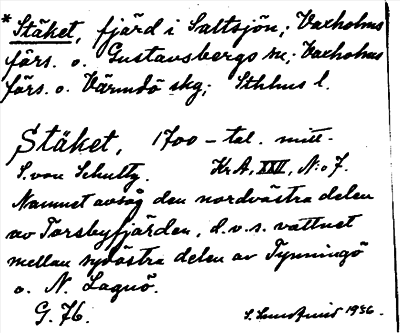 * Stäket, fjärd i Saltsjön; Vaxholms
förs. o. Gustavsbergs sn; Vaxholms
förs. o. Värmdö skg; Sthlms l.
Stäket, 1700-tal. mitt.
S. von Schultz. Kr A, XXII, N:o 7.
Namnet avsåg den nordvästra delen
av Torsbyfjärden, d.v.s. vattnet
mellan sydöstra delen av Tynningö
o. N. Lagnö.
G. 76. 1936.